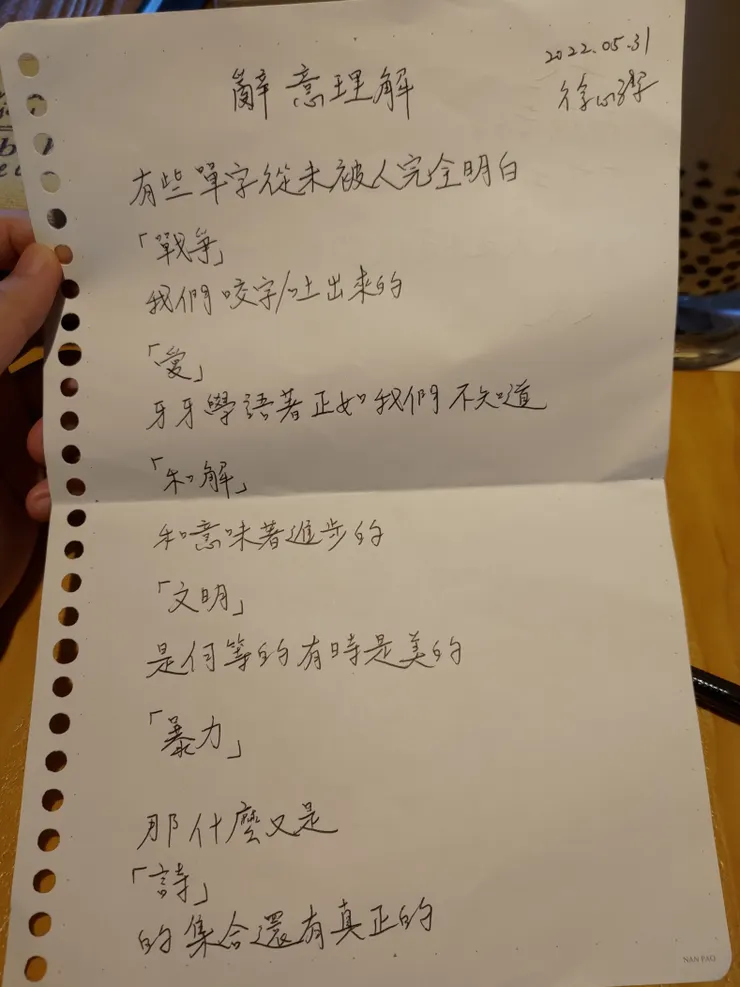 2022.05.31
辭意理解
有些單字從未被人完全明白
「戰爭」
我們咬字/吐出來的
「愛」
牙牙學語著正如我們不知道
「和解」
和意味著進步的
「文明」
是何等的有時是美的
「暴力」
那什麼又是
「詩」
的集合還有真正的
NAN PAO